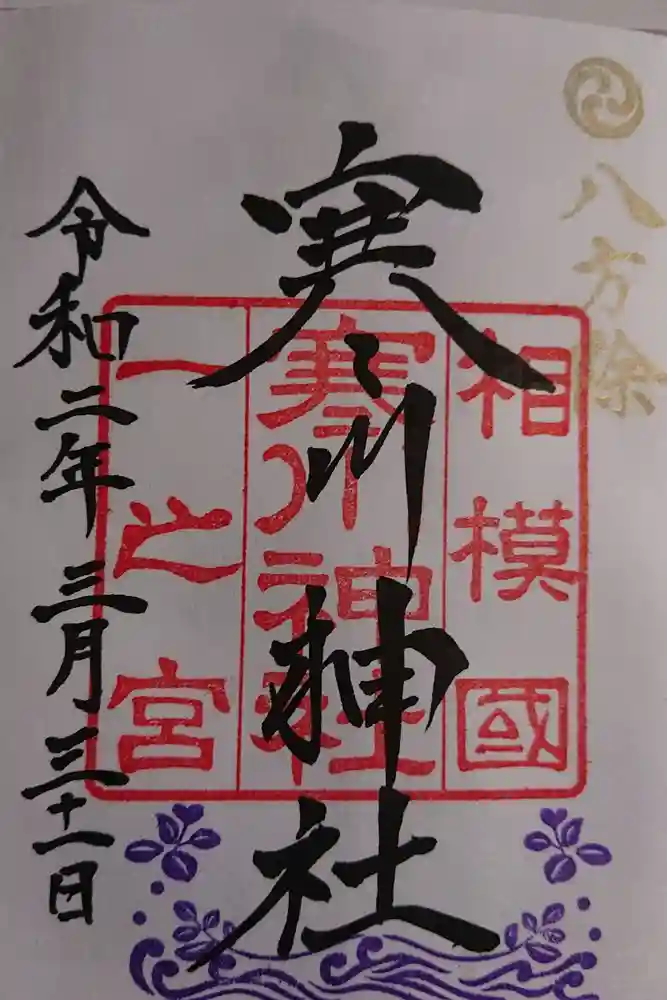 八方除
相模國
寒川神社
一之宮
寒川神社
令和二年三月三十一日